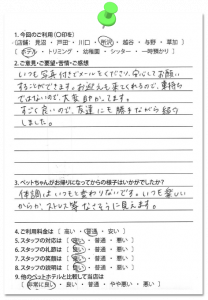 1.今回のご利用（○印を）
（店舗: 見沼 ・ 戸田 ・ 川口 ・ 所沢 ・ 越谷 ・ 与野 ・ 草加 ）
（ ホテル ・ トリミング ・ 幼稚園 ・ シッター ・ 一時預かり ）
2.ご意見・ご要望・苦情・ご感想
いつも写真付きでメールをくださり、安心してお願い
することができます。お迎えも来てくれるので、車持ち
ではないので、大変助かってます。
すごく良いので、友達にも勝手ながら紹介
しました。
3.ペットちゃんがお帰りになってからの様子はいかがでしたか？
体調はいつも変わりないです。いつも楽しい
からか、ストレス等なさそうに見えます。
4.ご利用料金は （ 高い ・ 普通 ・ 安い ）
5.スタッフの対応は （ 良い ・ 普通 ・ 悪い ）
6.スタッフの礼節は （ 良い ・ 普通 ・ 悪い ）
7.スタッフの笑顔は （ 良い ・ 普通 ・ 悪い ）
8.スタッフの説明は （ 良い ・ 普通 ・ 悪い ）
9.他のペットホテルと比較して当店は
（ 非常に良い ・ 良い ・ 普通 ・ やや悪い ・ 悪い ）